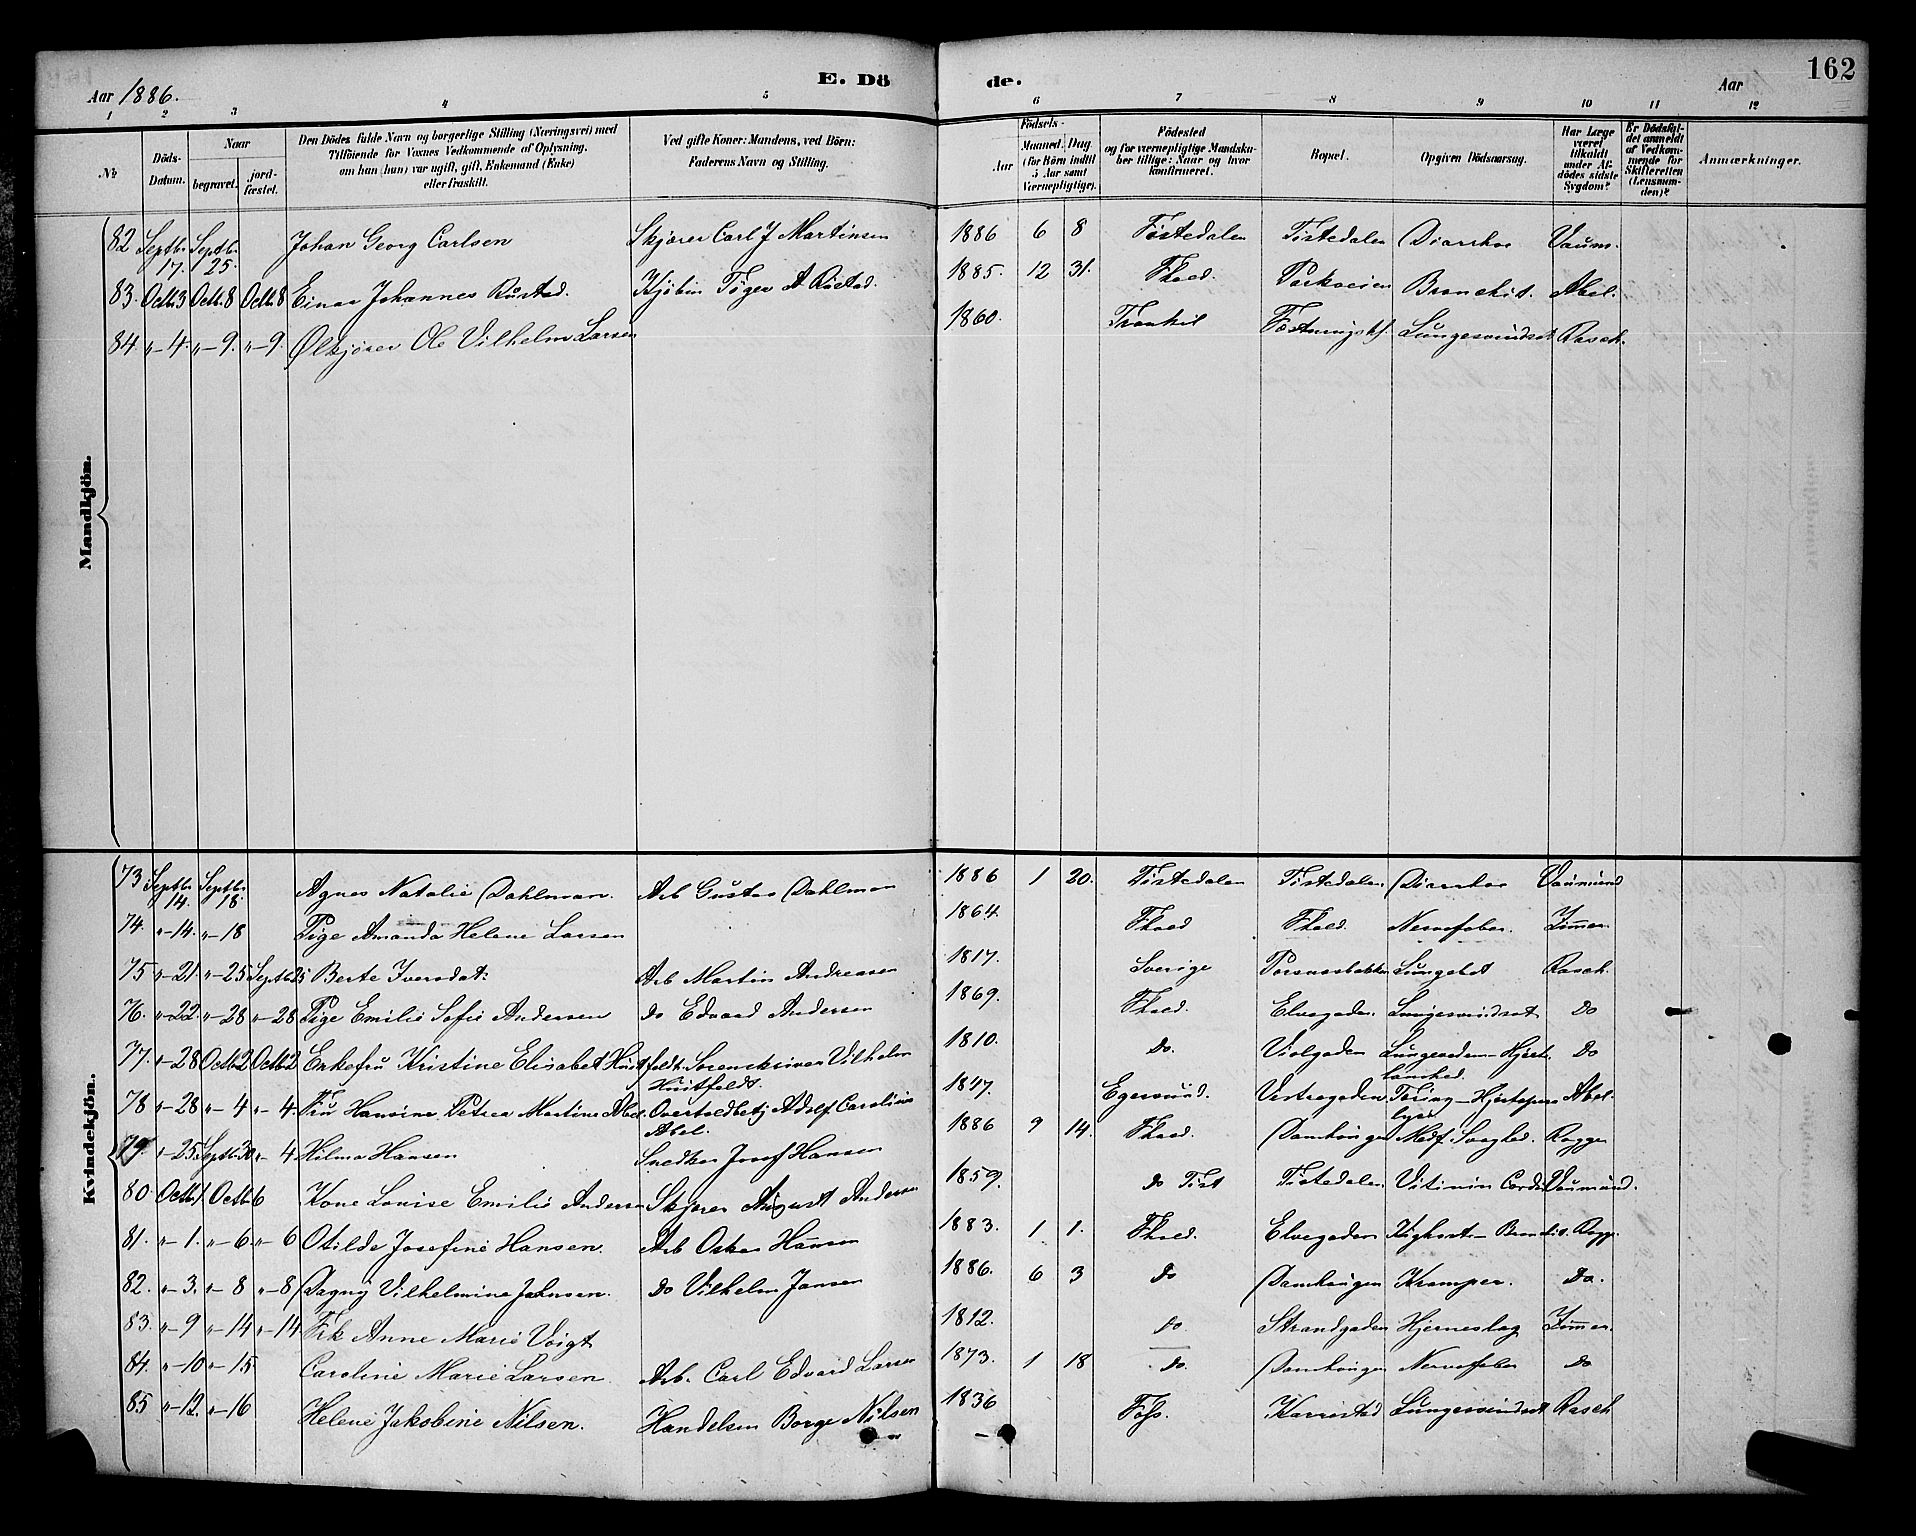 162
E. Döde.
Aar 1886.
Aar
1 2 3 4 5 6 7 8 9 10 11 12
No
Döds-Datum.
Naar
begravet.
jord-fæstet.
Den Dödes fulde Navn og borgerlige Stilling (Næringsvei) med Tilföiende for Voxnes Vedkommende af Oplysning. om han (hun) var ugift, gift, Enkemand (Enke) eller fraskilt.
Ved gifte Koner: Mandens, ved Börn: Faderens Navn og Stilling.
Födsels-
Aar
Maaned. Dag
(for Börn indtil 5 Aar samt Værnepligtige).
Födested og for værnepligtige Mandska-ber tillige: Naar og hvor konfirmeret.
Bopæl.
Opgiven Dödsaarsag.
Har Læge været tilkaldt under Af-dödes sidste Sygdom?
Er Dödsfal-det anmeldt af Vedkom-mende for Skifteretten (Lensman-den)?
Anmærkninger.
Mandkjön.
82 Septbr. 17. Septbr. 25. Johan Georg Carlsen Skjører Carl J Martinsen 1886 6 8 Tistedalen Tistedalen Diarrhoe Vaum.
83. Octb 3 Octb. 8 Octb 8 Einar Johannes Rustad. Kjøbm A Rustad. 1885. 12 31. Fhald. Parkveien Bronchit. Abel.
84. " - 4. " - 9. " - 9. Ole Vilhelm Larsen 1860. Lungesvindsot Rasch.
Kvindekjön.
73. Septbr. 14. Septbr. 18. Agnes Natalie Dahlman. Arb Gustav Dahlman 1886 1 20. Tistedalen Tistedalen. Diarrhoe Vaumund
74. " - 14. " - 18 Pige Amanda Helene Larsen 1864. Fhald Fhald. Nervefeber. Zimmer.
75 " - 21. " - 25 Septb 25 Berte Iversdat: Arb Martin Andreasen 1817. Sverige Lungebet Rasch.
76. " - 22. " - 28 " - 28 Pige Emilie Sofie Andersen do Edvard Andersen 1869. Fhald. Elvegaden. Lungesvindsot Do
77. " - 28 Octb 2 Octb 2 Enkefru Kristine Elisabet Huitfeldt. Sorenskriver Vilhelm Huitfeldt. 1810. do. Violgaden Lungeødem - Hjert. Do
78 " - 28 " - 4 " - 4. Fru Hansine Petrea Martine Abel. Overtoldbetj Adolf Carolius Abel. 1847. Egersund. Vestregaden Abel.
79. " - 25 Septb 30 " - 4 Hilma Hansen Snedker Josef Hansen 1886 9 14. Fhald. Damhaugen Medf. Svaghed. Rogge
80 Octb 1. Octb 6 Kone Louise Emilie Andersen Skjører August Andersen 1859. do Tist Tistedalen. Vitium Cordis Vaumund.
81. " - 1. " - 6 " - 6 Otilde Josefine Hansen. Arb Oskar Hansen 1883. 1. 1. Fhald. Elvegaden Kighoste - Bronchit. Rogg.
82. " - 3. " - 8 " - 8 Dagny Vilhelmine Johnsen. do Vilhelm Jansen 1886. 6 3 do Damhaugen Kramper. Do.
83. " - 9 " - 14 " - 14 Frk Anne Marie Voigt 1812. do Strandgaden Hjerneslag Zimmer.
84. " - 10 " - 15. Caroline Marie Larsen. Arb. Carl Edvard Larsen 1873. 1 18 do. Damhaugen Nervefeber do
85 " - 12. " - 16 Helene Jakobine Nilsen. Handelsm Borge Nilsen 1836 Karrestad Lungesvindsot Rasch